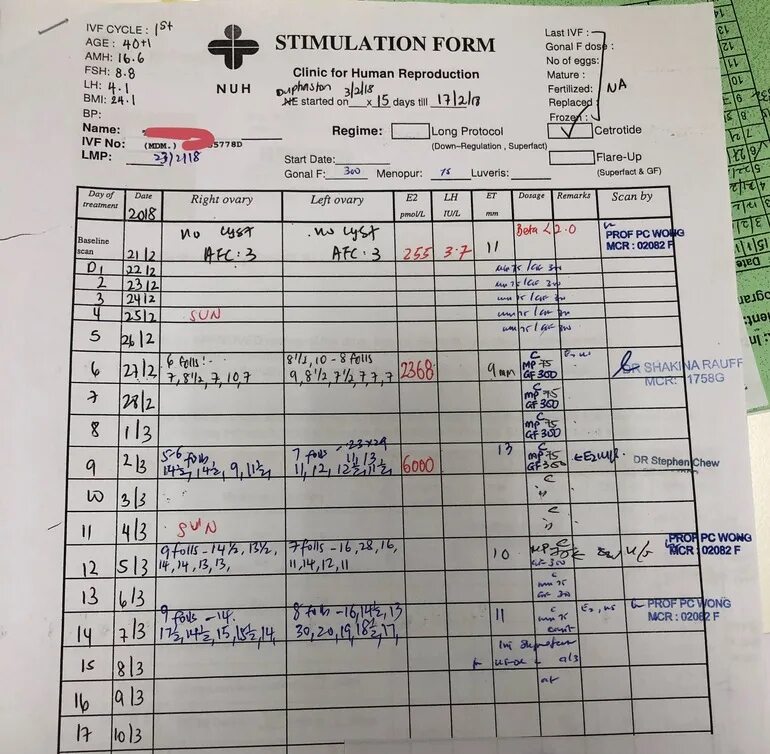 IVF CYCLE : 1st
AGE : 40+1
AMH : 16.6
FSH : 8.8
LH : 4.1
BMI : 24.1
BP:
Name:
IVF No: (MDM.) 5778D
LMP: 23/2/18
NUH
STIMULATION FORM
Clinic for Human Reproduction
Duphaston 3/2/18
NE started on x 15 days till 17/2/18
Last IVF :
Gonal F dose:
No of eggs:
Mature :
Fertilized:
Replaced
Frozen:
NA
Regime: Long Protocol
(Down-Regulation , Superfact)
Cetrotide
Flare-Up
(Superfact & GF)
Start Date:
Gonal F: 300 Menopur: 75 Luveris:
Day of treatment Date Right ovary Left ovary E2 pmol/L LH IU/L ET mm Dosage Remarks Scan by
2018
Baseline scan 21/2 No cyst AFC: 3 No cyst AFC: 3 255 3.7 11 Beta < 2.0 PROF PC WONG MCR : 02082 F
D1 22/2
2 23/2
3 24/2
4 25/2 SUN
5 26/2
6 27/2 6 folls: 7, 8½, 7, 10, 7 8½, 10 - 8 folls 9, 8½, 7½, 7, 7, 7 2368 9 mm C MP 75 GF 300 DR SHAKINA RAUFF MCR: 1758G
7 28/2 C MP 75 GF 300
8 1/3 C MP 75 GF 300
9 2/3 5-6 folls 14½, 14½, 9, 11½ 7 folls - 23x29 11, 13 11, 12, 12½, 11½ 6000 13 C MP 75 GF 300 DR Stephen Chew
10 3/3 C
11 4/3 SUN C
12 5/3 9 folls - 14½, 13½, 14, 14, 13, 13, 7 folls - 16, 28, 16, 11, 14, 12, 11 10 C GF 300 PROF PC WONG MCR : 02082 F
13 6/3 C
14 7/3 9 folls - 14. 17½, 14½, 15, 15½, 14, 8 folls - 16, 14½, 13 30, 20, 19, 18½, 17, 11 C PROF PC WONG MCR : 02082 F
15 8/3
16 9/3
17 10/3